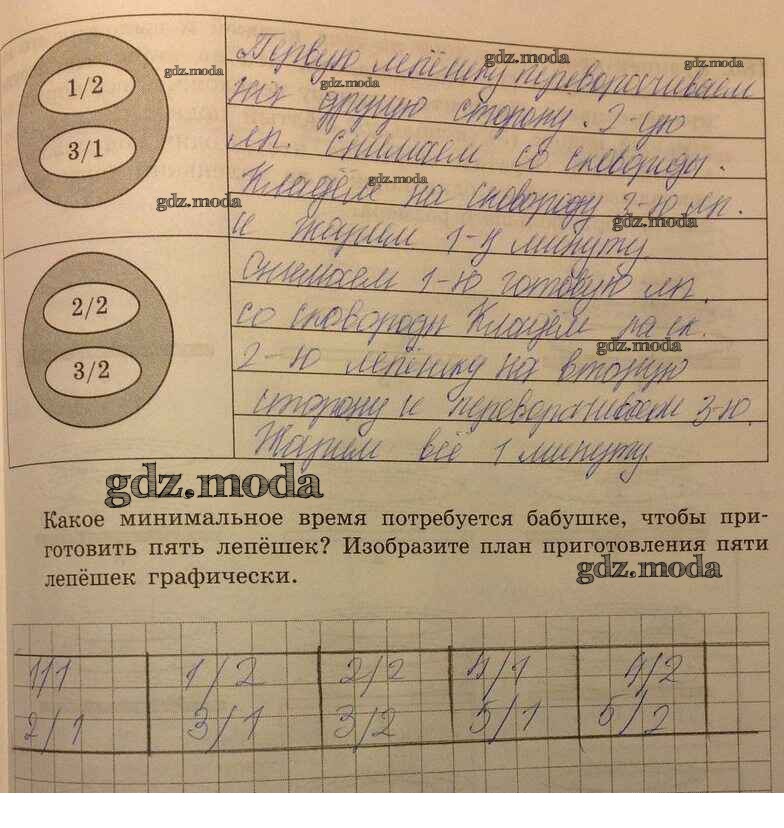 1/2
3/1
Первую лепёшку переворачиваем
на другую сторону. 2-ую
лп. снимаем со сковороды.
Кладём на сковороду 3-ю лп.
и жарим 1-у минуту
2/2
3/2
Снимаем 1-ю готовую лп.
со сковороды Кладём на ск.
2-ю лепёшку на вторую
сторону и переворачиваем 3-ю.
Жарим всё 1 минуту.
gdz.moda
gdz.moda
gdz.moda
gdz.moda
gdz.moda
gdz.moda
gdz.moda
gdz.moda
gdz.moda
gdz.moda
Какое минимальное время потребуется бабушке, чтобы при-
готовить пять лепёшек? Изобразите план приготовления пяти
лепёшек графически.
gdz.moda
1/1 1/2 2/2 4/1 4/2
2/1 3/1 3/2 5/1 5/2